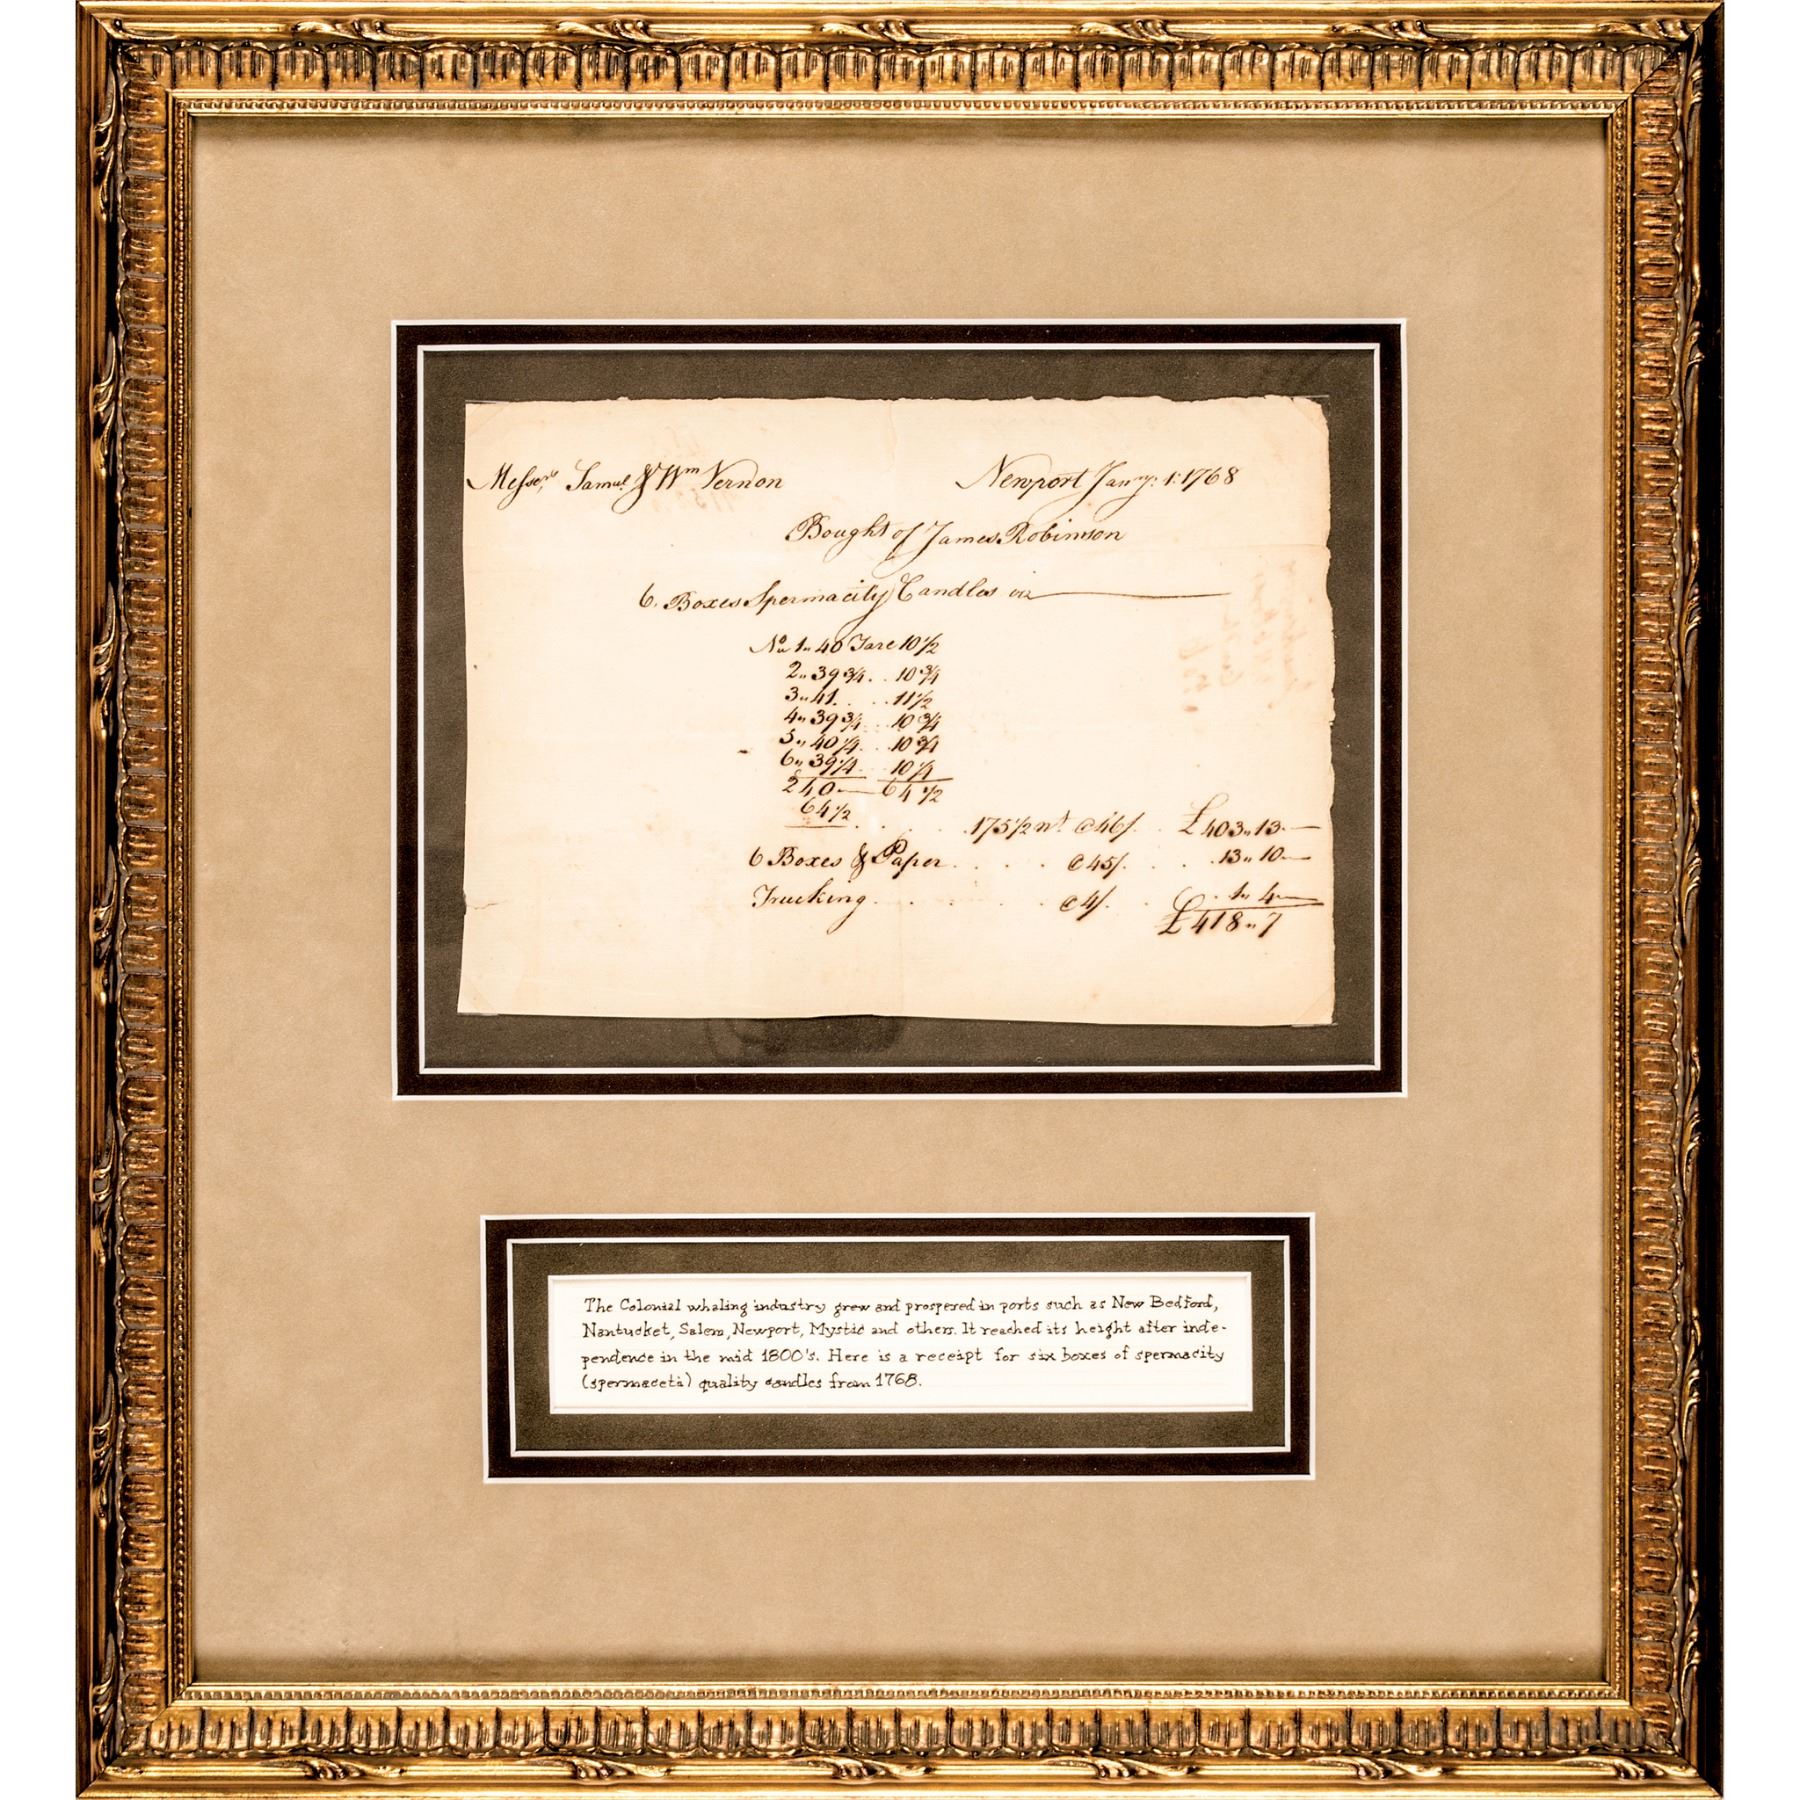 Messrs. Samul. & Wm Vernon
Newport Jany. 1: 1768
Bought of James Robinson
6. Boxes Spermacity Candles viz
No 1" 40 Tare 10 1/2
2" 39 3/4 .. 10 3/4
3" 41 . .. 11 1/2
4" 39 3/4 .. 10 3/4
5" 40 1/4 .. 10 3/4
6" 39 1/4 .. 10 1/4
240 — 64 1/2
64 1/2
. . . 175 1/2 nt @ 46/. . £403" 13 —
6 Boxes & Paper . . . . @ 45/. . . . 13" 10 —
Trucking . . . . . @ 4/. . . 1" 4 —
£418" 7
The Colonial whaling industry grew and prospered in ports such as New Bedford,
Nantucket, Salem, Newport, Mystic and others. It reached its height after inde-
pendence in the mid 1800's. Here is a receipt for six boxes of spermacity
(spermaceti) quality candles from 1768.